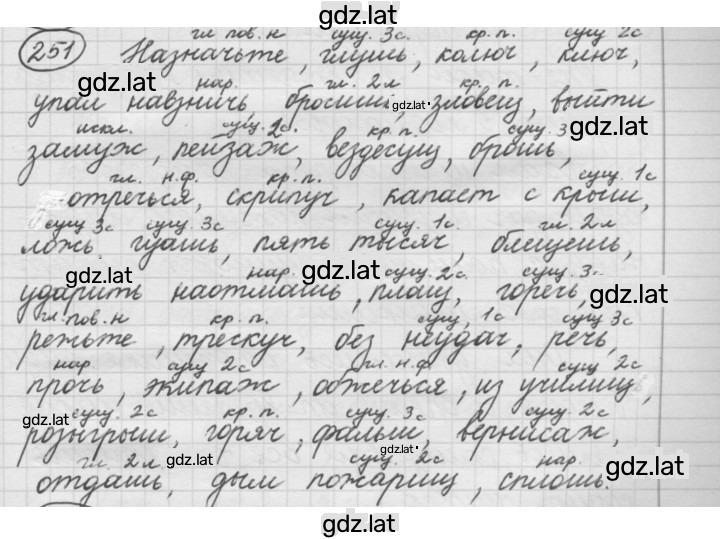 gdz.latt
гл. пов. н сущ. 3с. кр. п. сущ 2с
251 Назначьте, глушь, колюч, ключ,
gdz.latt
нар. гл. 2л кр. п.
упал навзничь, бросиш, gdz.latt зловещ, выйти
искл. сущ. 2с. кр. п. сущ. 3
gdz.latt
замуж, пейзаж, вездесущ, брошь,
гл. н.ф. кр. п. сущ. 1с
отречься, скрипуч, капает с крыш,
сущ 3с сущ. 3с сущ. 1с гл. 2л
ложь, гуашь, пять тысяч, блещешь,
gdz.latt gdz.latt
нар. сущ. 2с. сущ. 3с.
ударить наотмашь, плащ, горечь,
gdz.latt
гл. пов. н кр. п. сущ, 1с сущ 3с
режьте, трескуч, без неудач, речь,
нар. сущ 2с гл. н.ф. сущ 2с
прочь, экипаж, обжечься, из училищ,
gdz.latt сущ. 2с кр. п. сущ. 3с сущ. 2с
розыгрыш, горяч, фальш, вернисаж,
gdz.latt
гл. 2л. gdz.latt сущ. 2с нар.
gdz.latt
отдашь, дым пожарищ, сплошь.
gdz.latt